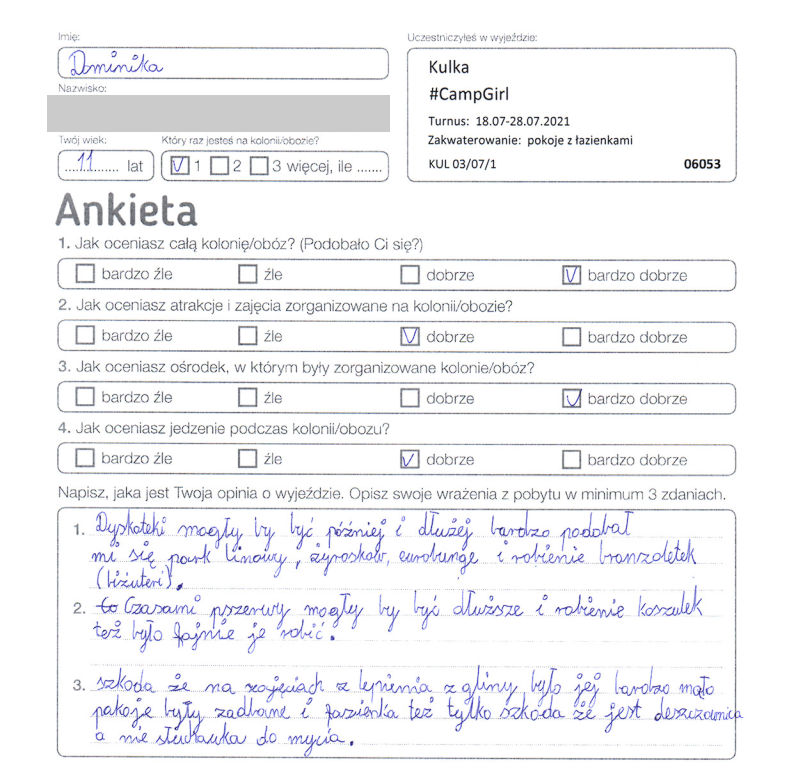 Imię:
Dominika
Uczestniczyłeś w wyjeździe:
Kulka
#CampGirl
Turnus: 18.07-28.07.2021
Zakwaterowanie: pokoje z łazienkami
KUL 03/07/1 06053
Nazwisko:
Twój wiek:
11 lat
Który raz jesteś na kolonii/obozie?
1 2 3 więcej, ile .......
Ankieta
1. Jak oceniasz całą kolonię/obóz? (Podobało Ci się?)
bardzo źle źle dobrze bardzo dobrze
2. Jak oceniasz atrakcje i zajęcia zorganizowane na kolonii/obozie?
bardzo źle źle dobrze bardzo dobrze
3. Jak oceniasz ośrodek, w którym były zorganizowane kolonie/obóz?
bardzo źle źle dobrze bardzo dobrze
4. Jak oceniasz jedzenie podczas kolonii/obozu?
bardzo źle źle dobrze bardzo dobrze
Napisz, jaka jest Twoja opinia o wyjeździe. Opisz swoje wrażenia z pobytu w minimum 3 zdaniach.
1. Dyskoteki mogły by być później i dłużej bardzo podobał
mi się park linowy, żyroskow, eurobunge i robienie branzoletek
(biżuteri).
2. Co Czasami pszerwy mogły by być dłuższe i robienie koszulek
też było fajnie je robić.
3. szkoda że na zajęciach z lepienia z gliny było jej bardzo mało
pokoje były zadbane i łazienka też tylko szkoda że jest deszczownica
a nie słuchawka do mycia.